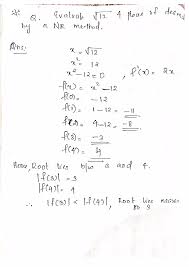 Q. Evaluate √12 4 place of decimal
by a NR method.
Ans:
x = √12
x² = 12
x² - 12 = 0 , f'(x) = 2x
f(x) = x² - 12
f(0) = -12
f(1) = 1 - 12 = -11
f(2) = 4 - 12 = -8
f(3) = -3
f(4) = 4
Here, Root lies b/w 3 and 4.
|f(3)| = 3
|f(4)| = 4
∴ |f(3)| < |f(4)|, Root lies nearer
to 3